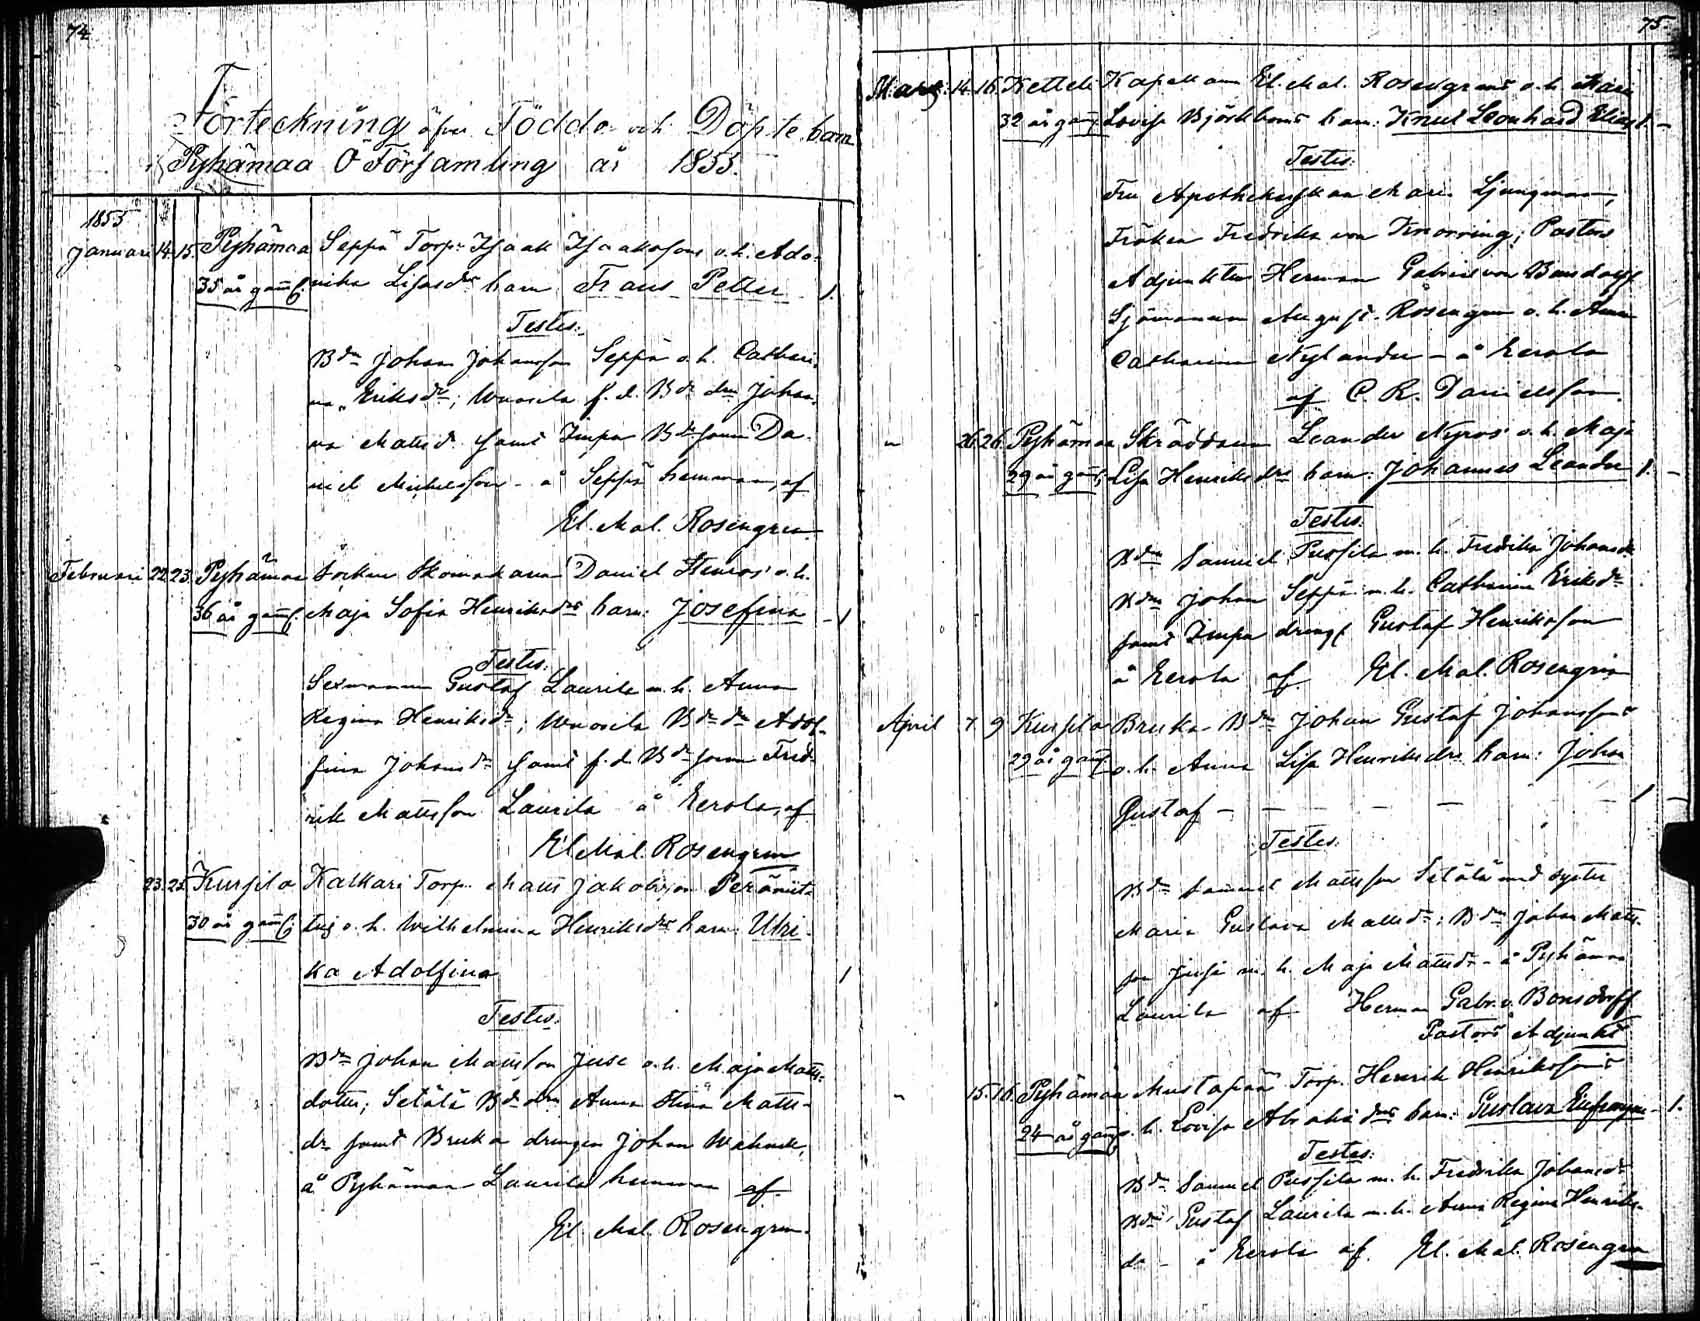 74
Förteckning öfver Födda och Döpte barn
i Pyhämaa Ö Församling år 1855.
1855
Januari 14. 15. Pyhämaa Seppä Torp. Isaak Isaaksons o. h. Ado-
35 år gam. nika Lisasdr barn Frans Petter 1.
Testes:
Bdn Johan Johansson Seppä o. h. Cathari-
na Eriksdr; Wuorela f. d. Bde drn Johan-
na Mattsd. samt Impa Bdesonen Da-
niel Michelsson - å Seppä hemman, af
El. Mal. Rosengren.
Februari 22. 23. Pyhämaa Socken Skomakaren Daniel Stenros' o. h.
36 år gam. Maja Sofia Henriksdrs barn: Josefina 1
Testes:
Sexmannen Gustaf Laurila m. h. Anna
Regina Henriksdr; Wuorela Bde dr Adol-
fina Johansdr samt f. d. Bde sonen Fred-
rik Mattsson Laurila å Kerola, af
El Mal. Rosengren
23. 25. Kursila Kalkari Torp. Matts Jakobsson
30 år gam. o. h. Wilhelmina Henriksdrs barn: Ulri-
ka Adolfina 1
Testes:
Bdn Johan Mattsson Juse o. h. Maja Matts-
dotter; Setälä Bde drn Anna Stina Matts-
dr samt Bruka drengen Johan
å Pyhämaa Laurila hemman af
El. Mal. Rosengren.
75.
Mars. 14. 16. Ketteli Kapellan El. Mal. Rosengrens o. h. Maria
32 år gam. Lovisa Björkboms barn: Knut Leonhard Elias 1. -
Testes:
Fru Apothekerskan Mari Ljungman,
Fröken Fredrika von Knorring; Pastors
Adjunkten Herman Gabriel von Bonsdorff
Sjömannen August Rosengren o. h. Anna
Catharina Nylander - å Kerola
af C. R. Danielsson.
" 26. 26. Pyhämaa Skräddaren Leander Nyros' o. h. Maja
29 år gam. Lisa Henriksdrs barn: Johannes Leander 1. -
Testes:
Bdn Samuel Pussila m. h. Fredrika Johansdr
Bdn Johan Seppä m. h. Catharina Eriksdr
samt Impa dreng Gustaf Henriksson
å Kerola af El. Mal. Rosengren
April 7. 9 Kursila Bruka Bdn Johan Gustaf Johanssons
29 år gam. o. h. Anna Lisa Henriksdrs barn: Johan
Gustaf - - - - 1 -
Testes:
Bdn Samuel Mattsson Setälä med syster
Maria Gustava Mattsdr; Bdn Johan Matts-
son Juse m. h. Maja Mattsdr - å Pyhämaa
Laurila af Herman Gabr. v. Bonsdorff
Pastors Adjunkt
" 15. 16. Pyhämaa Mustapää Torp. Henrik Henrikssons
24 år gam. o. h. Lovisa Abrahdrs barn: Gustava 1.
Testes:
Bdn Samuel Pussila m. h. Fredrika Johansdr
Bdn Gustaf Laurila m. h. Anna Regina Henriks-
dr - å Kerola af El. Mal. Rosengren